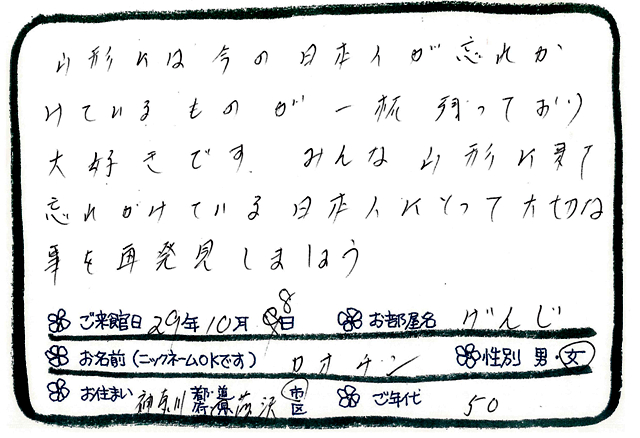 山形には今の日本人が忘れか
けているものが一杯残っており
大好きです。みんな山形に来て
忘れかけている日本人にとって大切な
事を再発見しましょう
ご来館日 29年10月8日 お部屋名 げんじ
お名前(ニックネームOKです) カオチン 性別 男・女
お住まい 神奈川 都・道・府・県 藤沢 市・区 ご年代 50